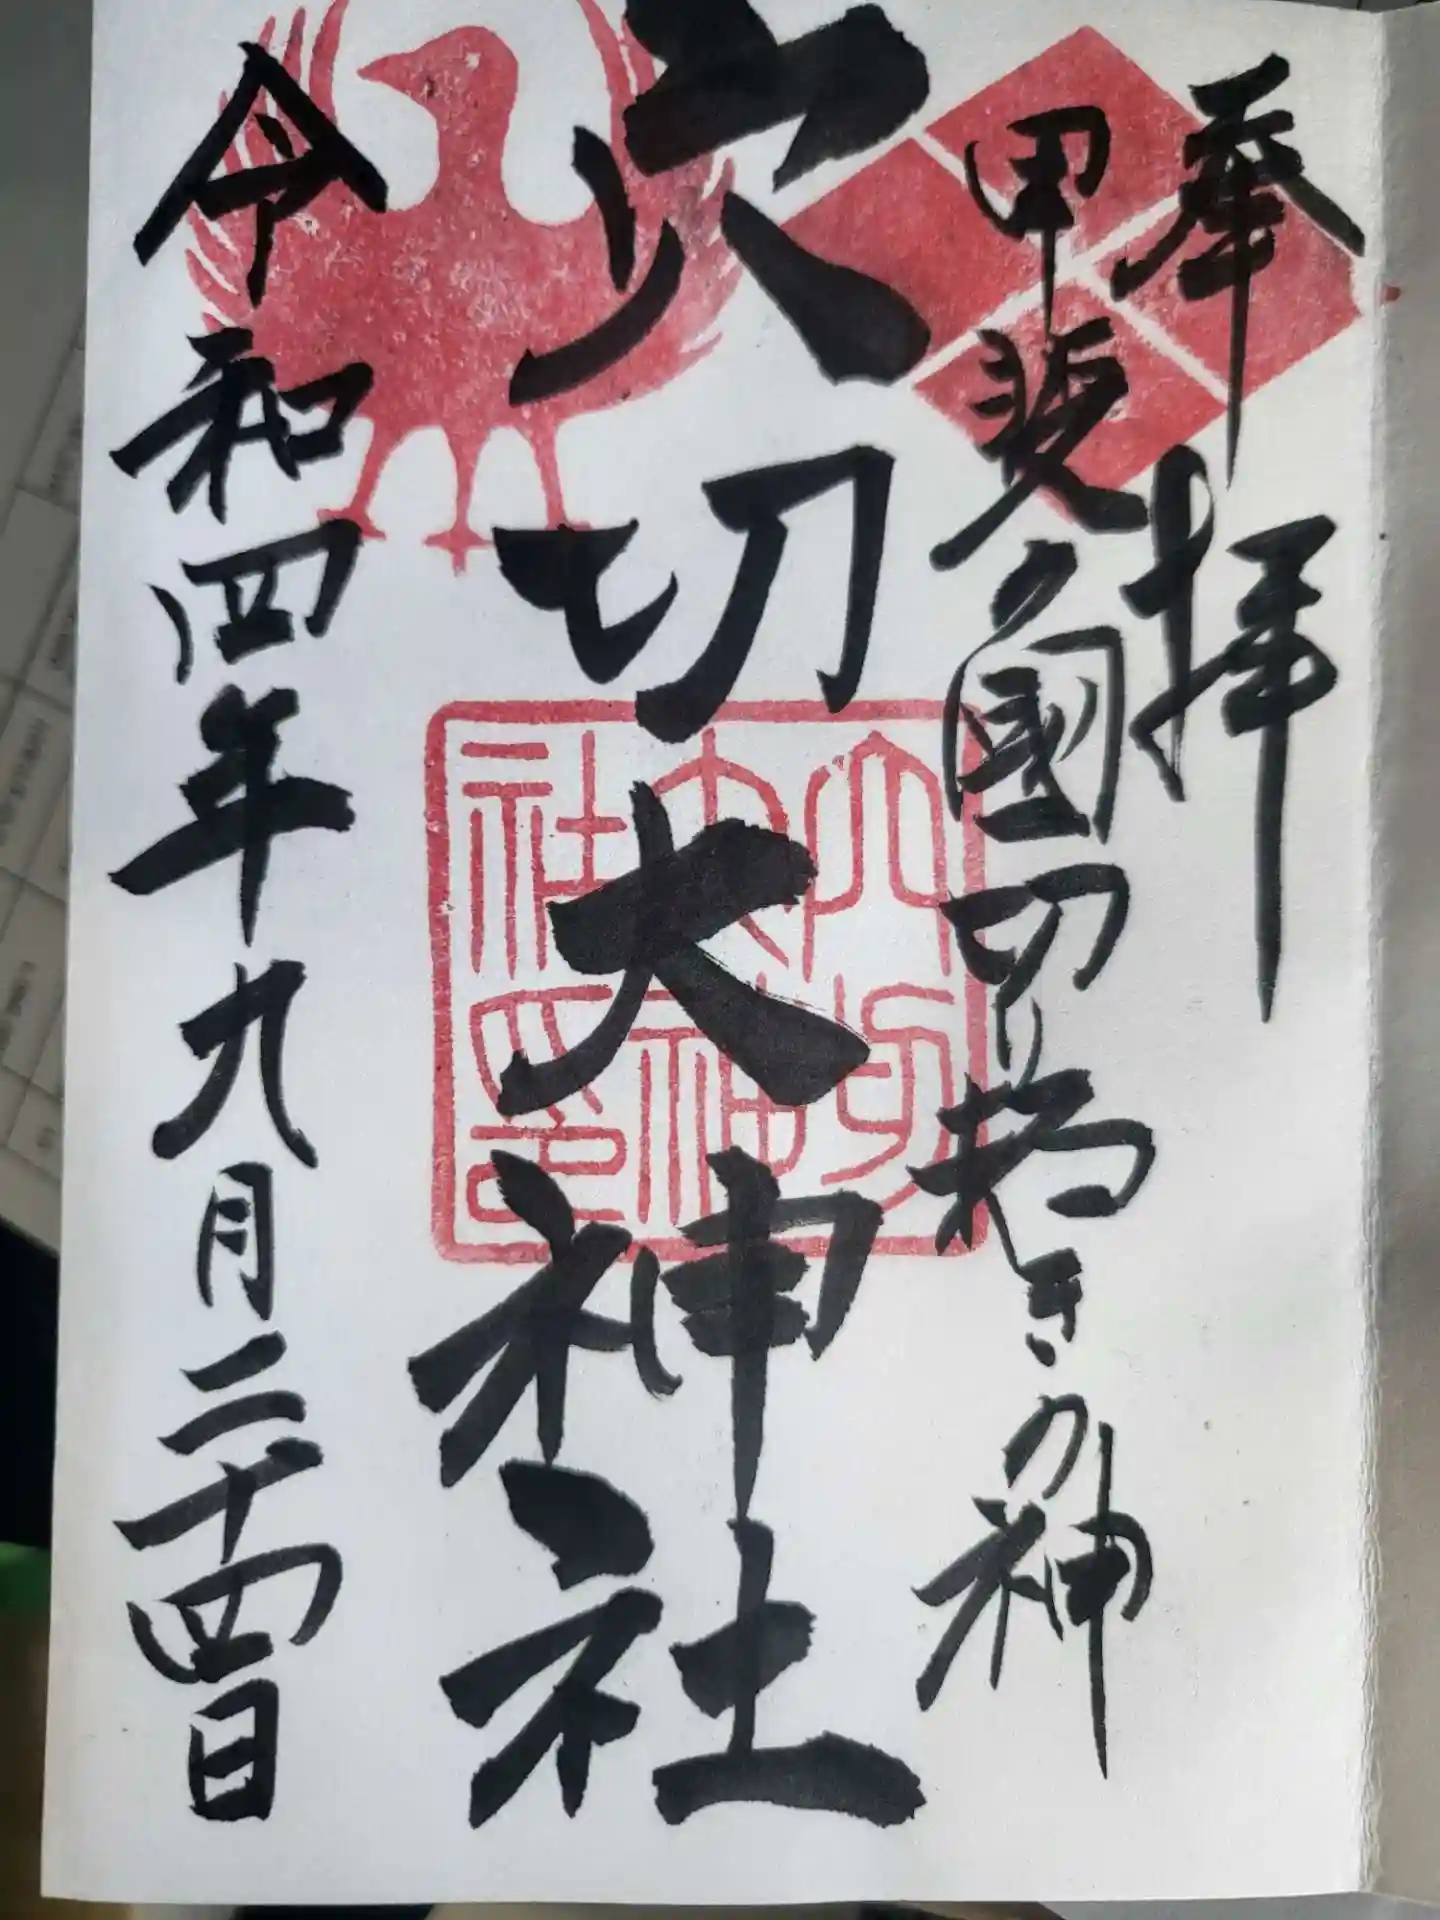 奉拝
甲斐の國切り拓きの神
穴切大神社
穴切
大神
社之印
令和四年九月二十四日